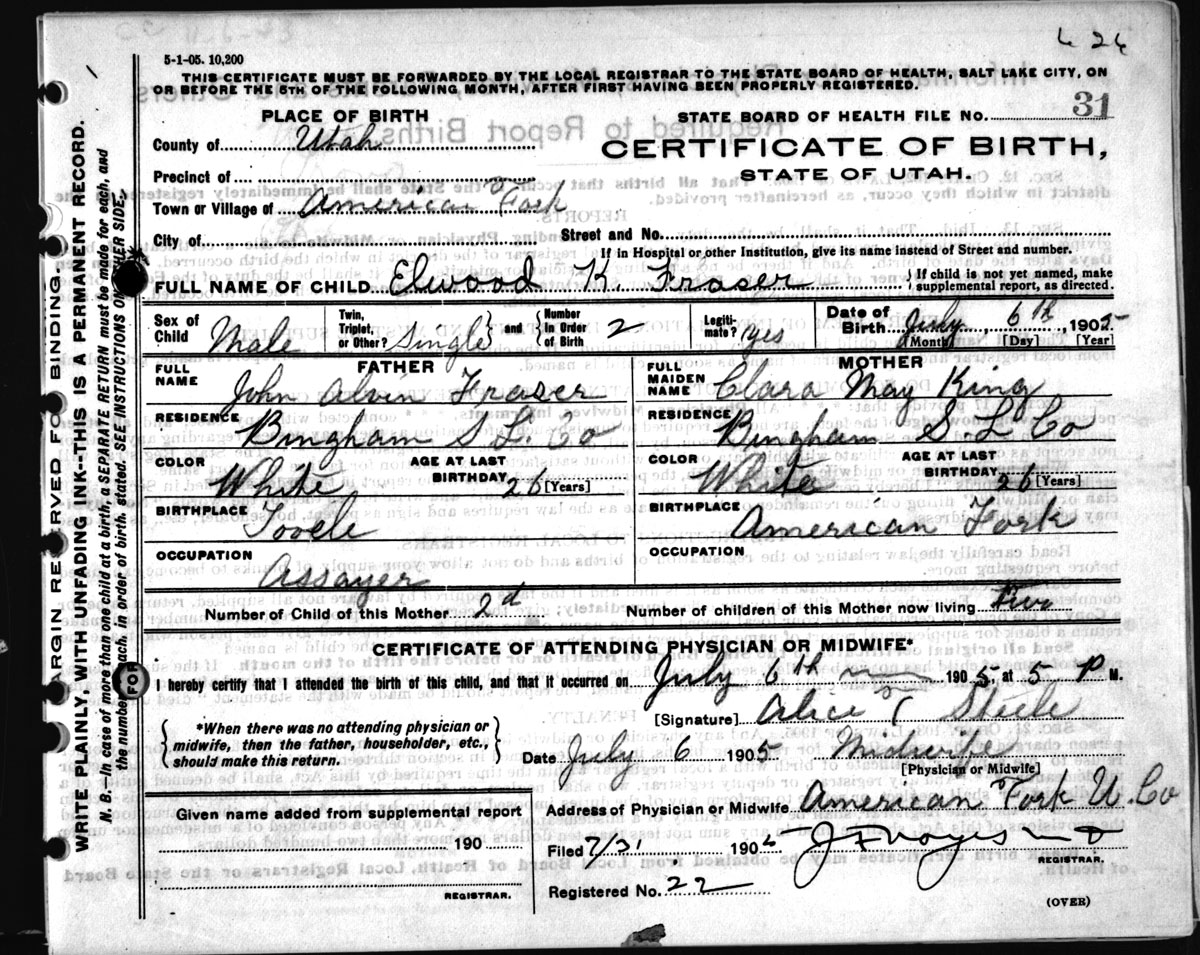 424
5-1-05. 10,200
THIS CERTIFICATE MUST BE FORWARDED BY THE LOCAL REGISTRAR TO THE STATE BOARD OF HEALTH, SALT LAKE CITY, ON
OR BEFORE THE 5TH OF THE FOLLOWING MONTH, AFTER FIRST HAVING BEEN PROPERLY REGISTERED.
31
PLACE OF BIRTH
STATE BOARD OF HEALTH FILE NO.
County of Utah
CERTIFICATE OF BIRTH,
STATE OF UTAH.
Precinct of
Town or Village of American Fork
City of
Street and No.
If in Hospital or other Institution, give its name instead of Street and number.
FULL NAME OF CHILD Elwood K. Fraser
If child is not yet named, make
supplemental report, as directed.
Sex of Child Male
Twin, Triplet, or Other? Single
and
Number in Order of Birth 2
Legiti-mate? yes
Date of Birth July 6th 1905
[Month] [Day] [Year]
FATHER
FULL NAME John Alvin Fraser
RESIDENCE
Bingham S. L. Co
COLOR White
AGE AT LAST BIRTHDAY 26 [Years]
BIRTHPLACE
Tooele
OCCUPATION
Assayer
MOTHER
FULL MAIDEN NAME Clara May King
RESIDENCE
Bingham S. L Co
COLOR White
AGE AT LAST BIRTHDAY 26 [Years]
BIRTHPLACE
American Fork
OCCUPATION
Number of Child of this Mother 2d
Number of children of this Mother now living
CERTIFICATE OF ATTENDING PHYSICIAN OR MIDWIFE*
I hereby certify that I attended the birth of this child, and that it occurred on July 6th 1905, at 5 P M.
*When there was no attending physician or
midwife, then the father, householder, etc.,
should make this return.
[Signature] Alice T Steele
Date July 6 1905 Midwife
[Physician or Midwife]
Given name added from supplemental report
190
REGISTRAR.
Address of Physician or Midwife American Fork U. Co
Filed 7/31 190 J F Noyes
REGISTRAR.
Registered No. 22
(OVER)
MARGIN RESERVED FOR BINDING.
WRITE PLAINLY, WITH UNFADING INK--THIS IS A PERMANENT RECORD.
N. B.--In case of more than one child at a birth, a SEPARATE RETURN must be made for each, and
the number of each, in order of birth, stated. SEE INSTRUCTIONS ON OTHER SIDE.